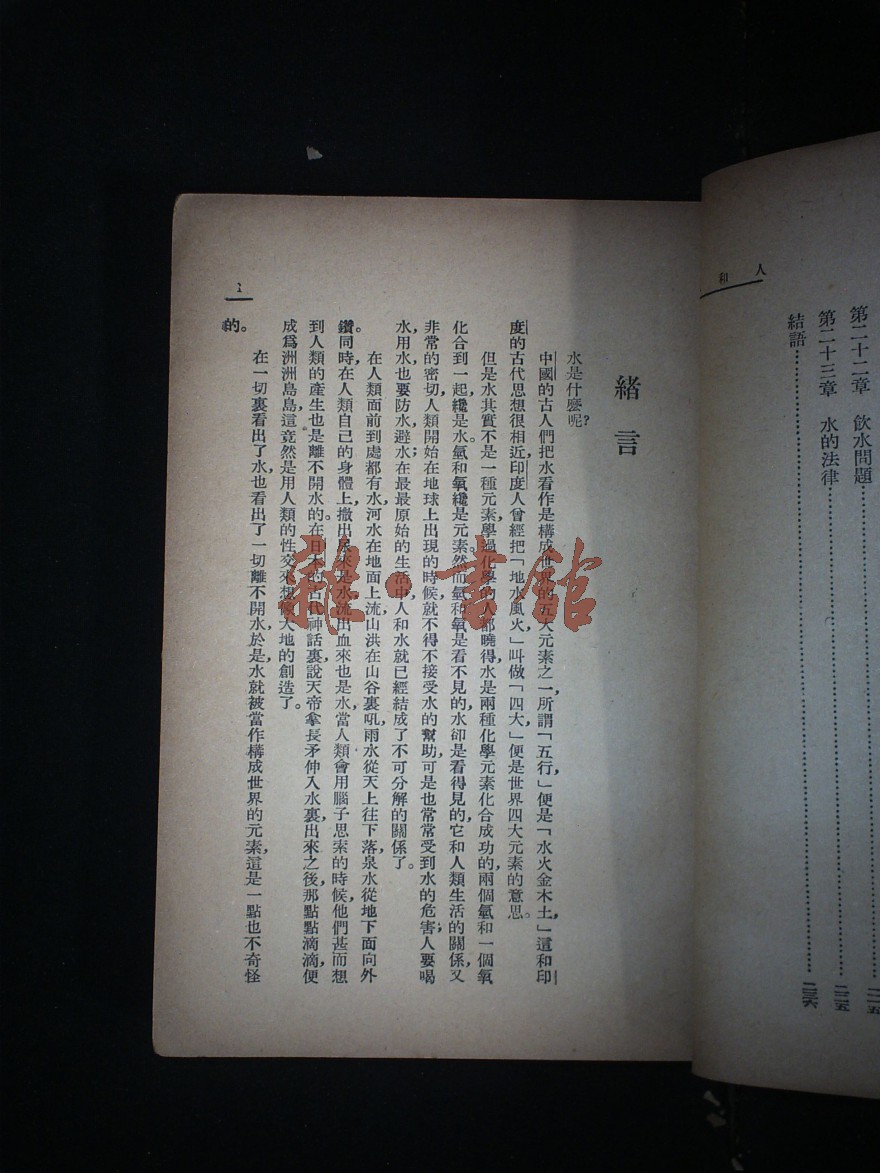 人
和
第二十二章 飲水問題………………二一五
第二十三章 水的法律………………二二五
結語………………二三六
緒言
水是什麼呢?
中國的古人們把水看作是構成世界的五大元素之一,所謂「五行,」便是「水火金木土,」這和印
度的古代思想很相近,印度人曾經把「地水風火」叫做「四大,」便是世界四大元素的意思。
但是水其實不是一種元素,學過化學的人都曉得水是兩種化學元素化合成功的,兩個氫和一個氧
化合到一起,纔是水。氫和氧纔是元素。然而氫和氧是看不見的,水卻是看得見的,它和人類生活的關係又
非常的密切,人類開始在地球上出現的時候,就不得不接受水的幫助,可是也常常受到水的危害;人要喝
水,用水,也要防水,避水;在最最原始的生活中,人和水就已經結成了不可分解的關係了。
在人類面前到處都有水,河水在地面上流,山洪在山谷裏吼,雨水從天上往下落,泉水從地下面向外
鑽。同時,在人類自己的身體上,撒出尿來是水,流出血來也是水,當人類會用腦子思索的時候,他們甚而想
到人類的產生也是離不開水的。在日本的古代神話裏說天帝拿長矛伸入水裏,出來之後,那點點滴滴便
成爲洲洲島島,這竟然是用人類的性交來想像大地的創造了。
在一切裏看出了水,也看出了一切離不開水,於是,水就被當作構成世界的元素,這是一點也不奇怪
的。
1
雜·書館